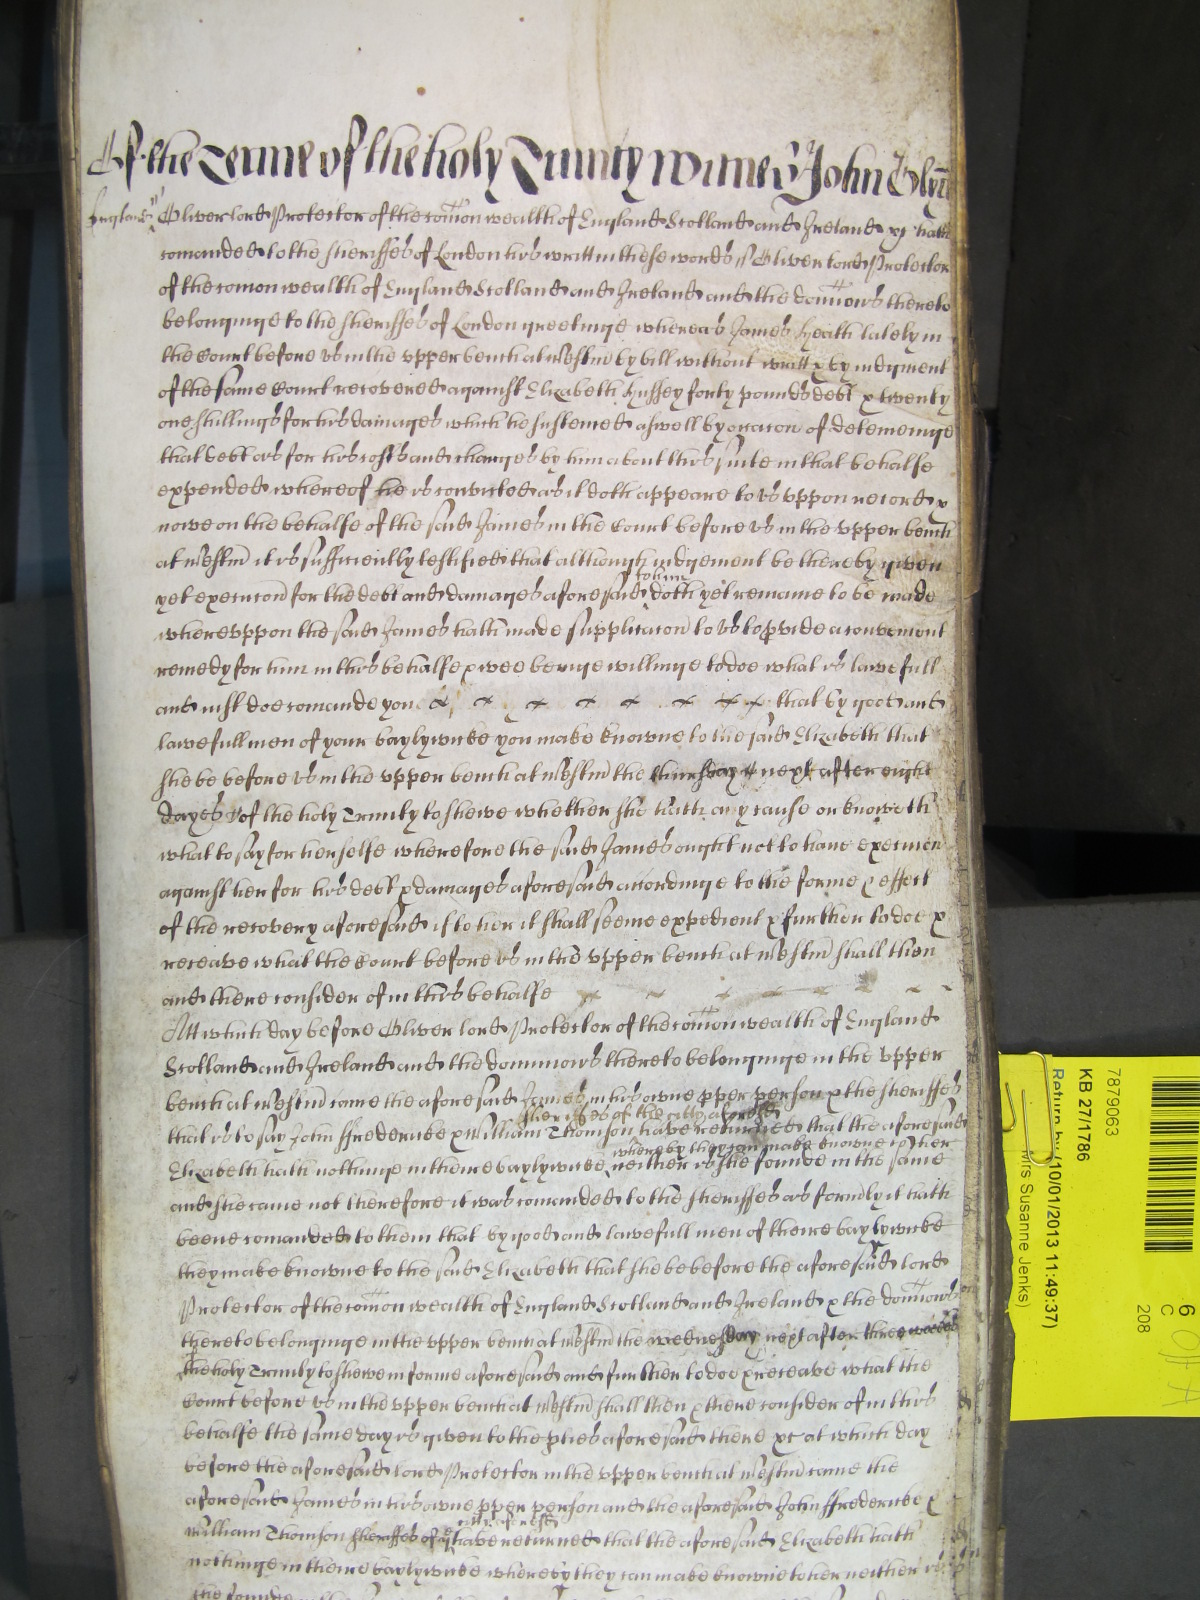 Of the Terme of the holy Trinity witnes John Glyn
England Oliver lord Protector of the comon wealth of England Scotland and Ireland &c hath
comanded to the sheriffes of London his writt in these words ss Oliver lord Protector
of the comon wealth of England Scotland and Ireland and the dominions thereto
belonginge to the sheriffes of London greetinge whereas James Heath lately in
the Court before us in the upper bench at Westm by bill without writt & by judgment
of the same Court recovered against Elizabeth Hussey forty pounds debt & twenty
one shillings for his damages which he susteined aswell by occacon of deteineinge
that debt as for his costs and charges by him about his suite in that behalfe
expended whereof he is convicted as it doth appeare to us uppon record &
nowe on the behalfe of the said James in the Court before us in the upper bench
at Westm it is sufficiently testified that although judgement be thereby given
yet execucon for the debt and damages aforesaid to him doth yet remaine to be made
whereuppon the said James hath made supplicacon to us to pvide a convenient
remedy for him in this behalfe & wee beinge willinge to doe what is lawefull
and just doe comande you that by good and
lawefull men of your baylywicke you make knowne to the said Elizabeth that
she be before us in the upper bench at Westm the thursday next after eight
dayes of the holy Trinity to shewe whether she hath any cause or knoweth
what to say for herselfe wherefore the said James ought not to have execucon
against her for his debt & damages aforesaid accordinge to the forme & effect
of the recovery aforesaid if to her it shall seeme expedient & further to doe &
receave what the Court before us in the upper bench at Westm shall then
and there consider of in this behalfe
Att which day before Oliver lord Protector of the comon wealth of England
Scotland and Ireland and the dominions thereto belonginge in the upper
bench at Westm came the aforesaid James in his owne pper person & the sheriffes
sheriffes of the citty aforesd
that is to say John ffredericke & William Thomson have returned that the aforesaid
whereby they can make knowne to her
Elizabeth hath nothinge in theire baylywicke neither is she founde in the same
and she came not therefore it was comanded to the sheriffes as formly it hath
beene comanded to them that by good and lawefull men of theire baylywicke
they make knowne to the said Elizabeth that she be before the aforesaid lord
Protector of the comon wealth of England Scotland and Ireland & the dominions
thereto belonginge in the upper bench at Westm the wednesday next after three weekes
the holy Trinity to shewe in forme aforesaid and further to doe & receave what the
Court before us in the upper bench at Westm shall then & there consider of in this
behalfe the same day is given to the pties aforesaid there &c at which day
before the aforesaid lord Protector in the upper bench at Westm came the
aforesaid James in his owne pper person and the aforesaid John ffredericke &
William Thomson sheriffes of have returned that the aforesaid Elizabeth hath
nothinge in theire baylywicke whereby they can make knowne to her neither is
she founde
7879063
KB 27/1786
Return by (10/01/2013 11:49:37)
Mrs Susanne Jenks)
6
C
208